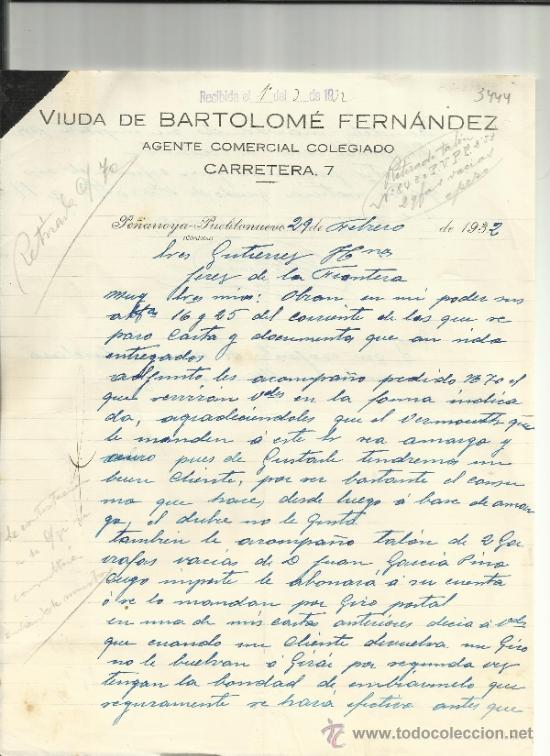 Recibida el 1º del 3 de 1932
3444
VIUDA DE BARTOLOMÉ FERNÁNDEZ
AGENTE COMERCIAL COLEGIADO
CARRETERA, 7
Retirado talón
vacias
Retirada
70
Peñarroya-Pueblonuevo 29 de Febrero de 1932
(CORDOBA)
Sres Gutierrez Hnos
Jerez de la Frontera
Muy Sres mios: Obran en mi poder sus
16 y 25 del corriente de las que se
paro carta y documentos que an sido
entregados
adjunto les acompaño pedido 1370 el
que serviran Vdes en la forma indica
da, agradeciendoles que el Vermouth que
le manden á este Sr sea amargo y
pues de Gustarle tendremos un
buen Cliente, por ser bastante el consu
mo que hace, desde luego á base de amar
go, el dulce no le Gusta
tambien le acompaño talón de 2 Ga
rrafas vacias de D Juan Garcia Pina
cuyo importe le abonara á su cuenta
ó se lo mandan por Giro postal
en una de mis carta anteriores decia á Vdes
que cuando un Cliente devuelva un Giro
no le buelvan á Girar por segunda vez
tengan la bondad de embiarmelo que
seguramente se hara efectivo antes que
todocoleccion.net